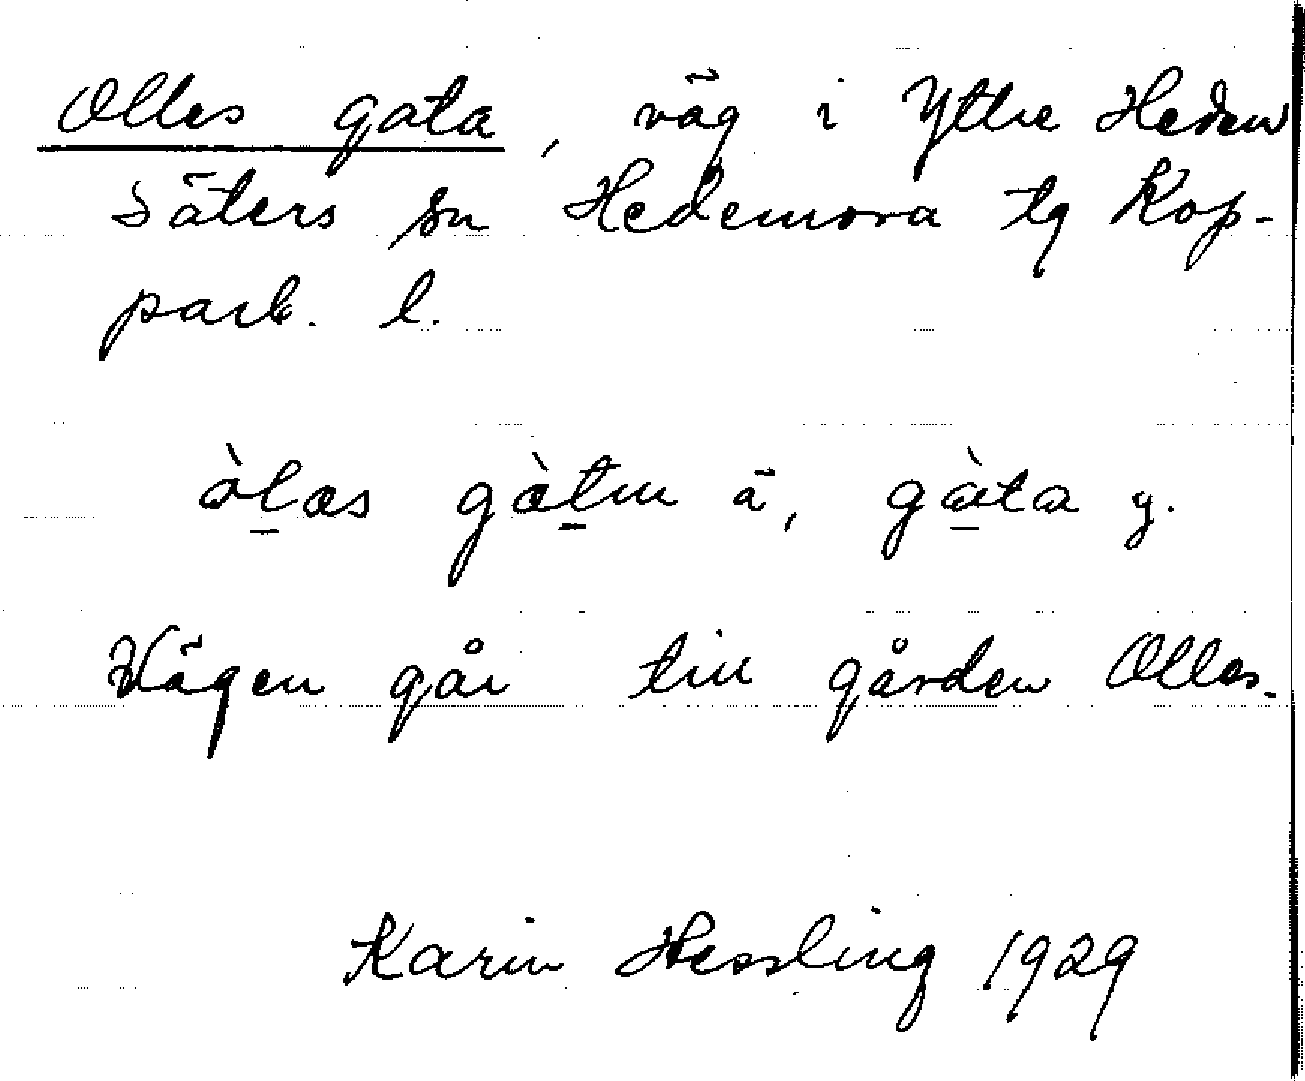 Olles gata, väg i Yttre Heden
Säters sn Hedemora tg Kop-
parb. l.
òlas gàtn ä, gàta y.
Vägen går till gården Olles.
Karin Hessling 1929